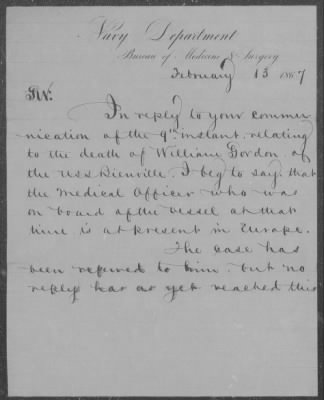 Navy Department
Bureau of Medicine & Surgery
February 13 1867
Sir:
In reply to your commu-
nication of the 9th instant, relating
to the death of William Gordon, of
the USS Bienville, I beg to say, that
the Medical Officer who was
on board of the vessel at that
time is at present in Europe.
The case has
been referred to him, but no
reply has as yet reached this